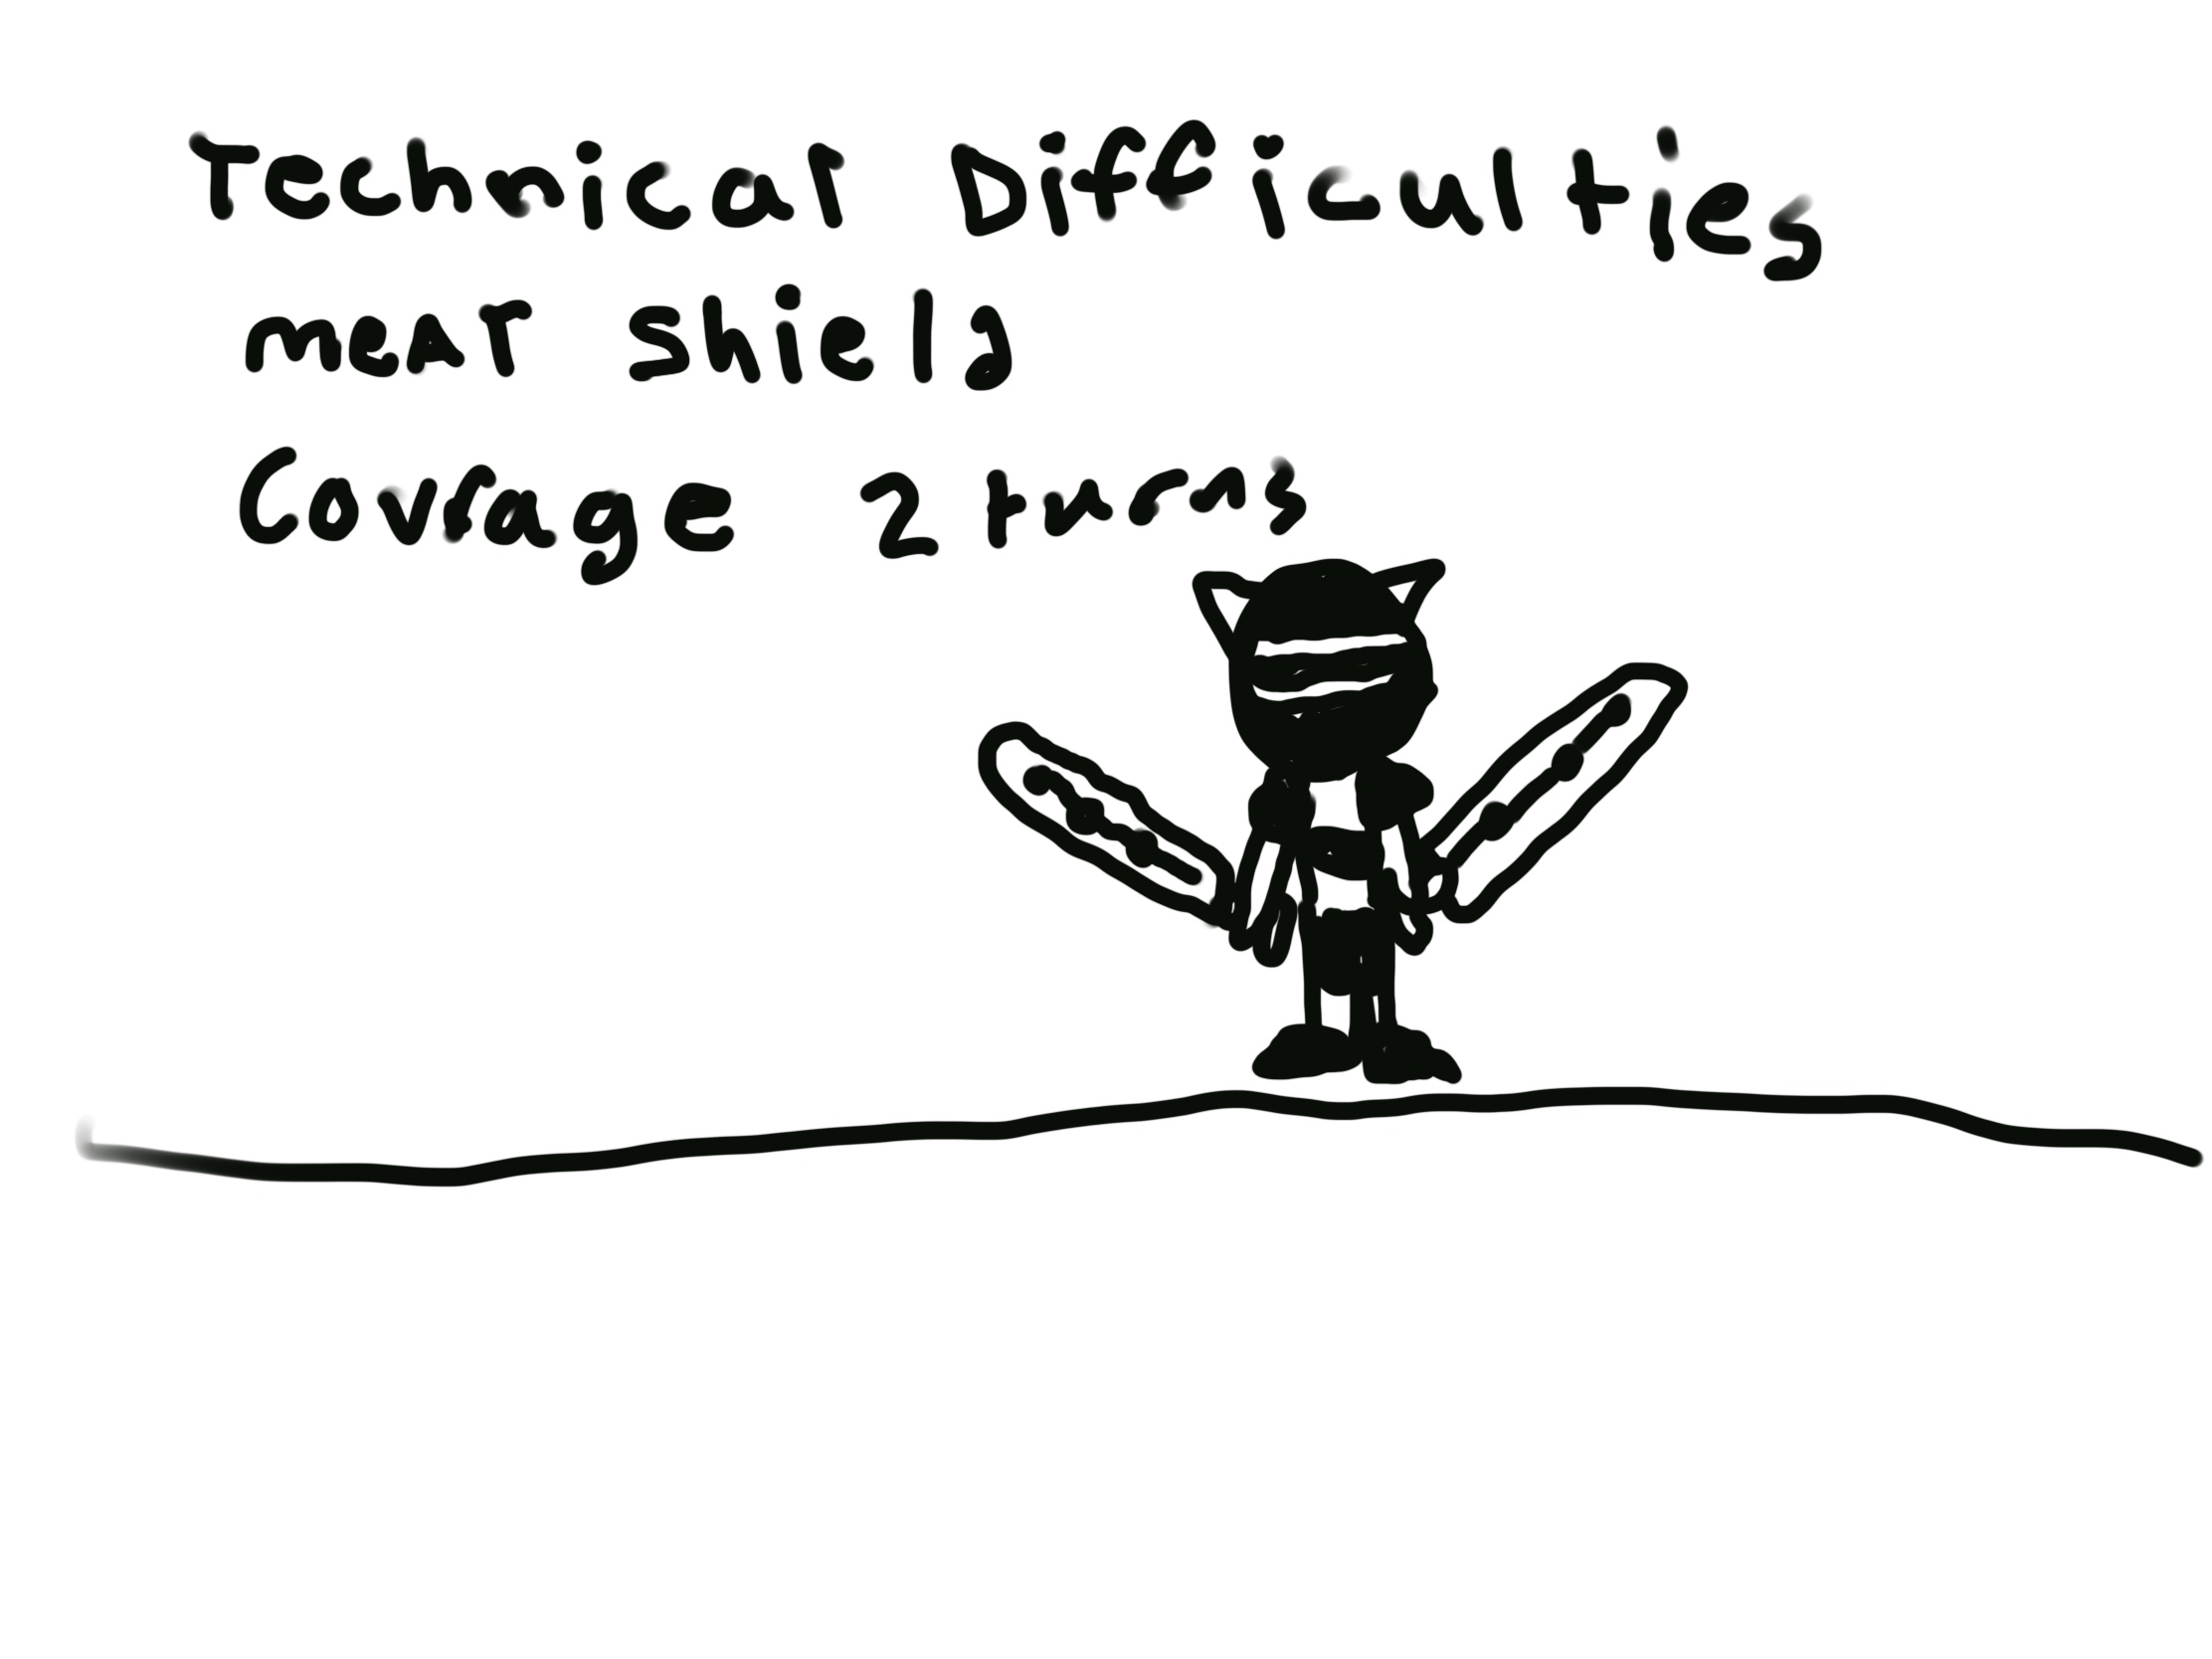 Technical Difficulties
meAT Shield
Covrage 2 turns